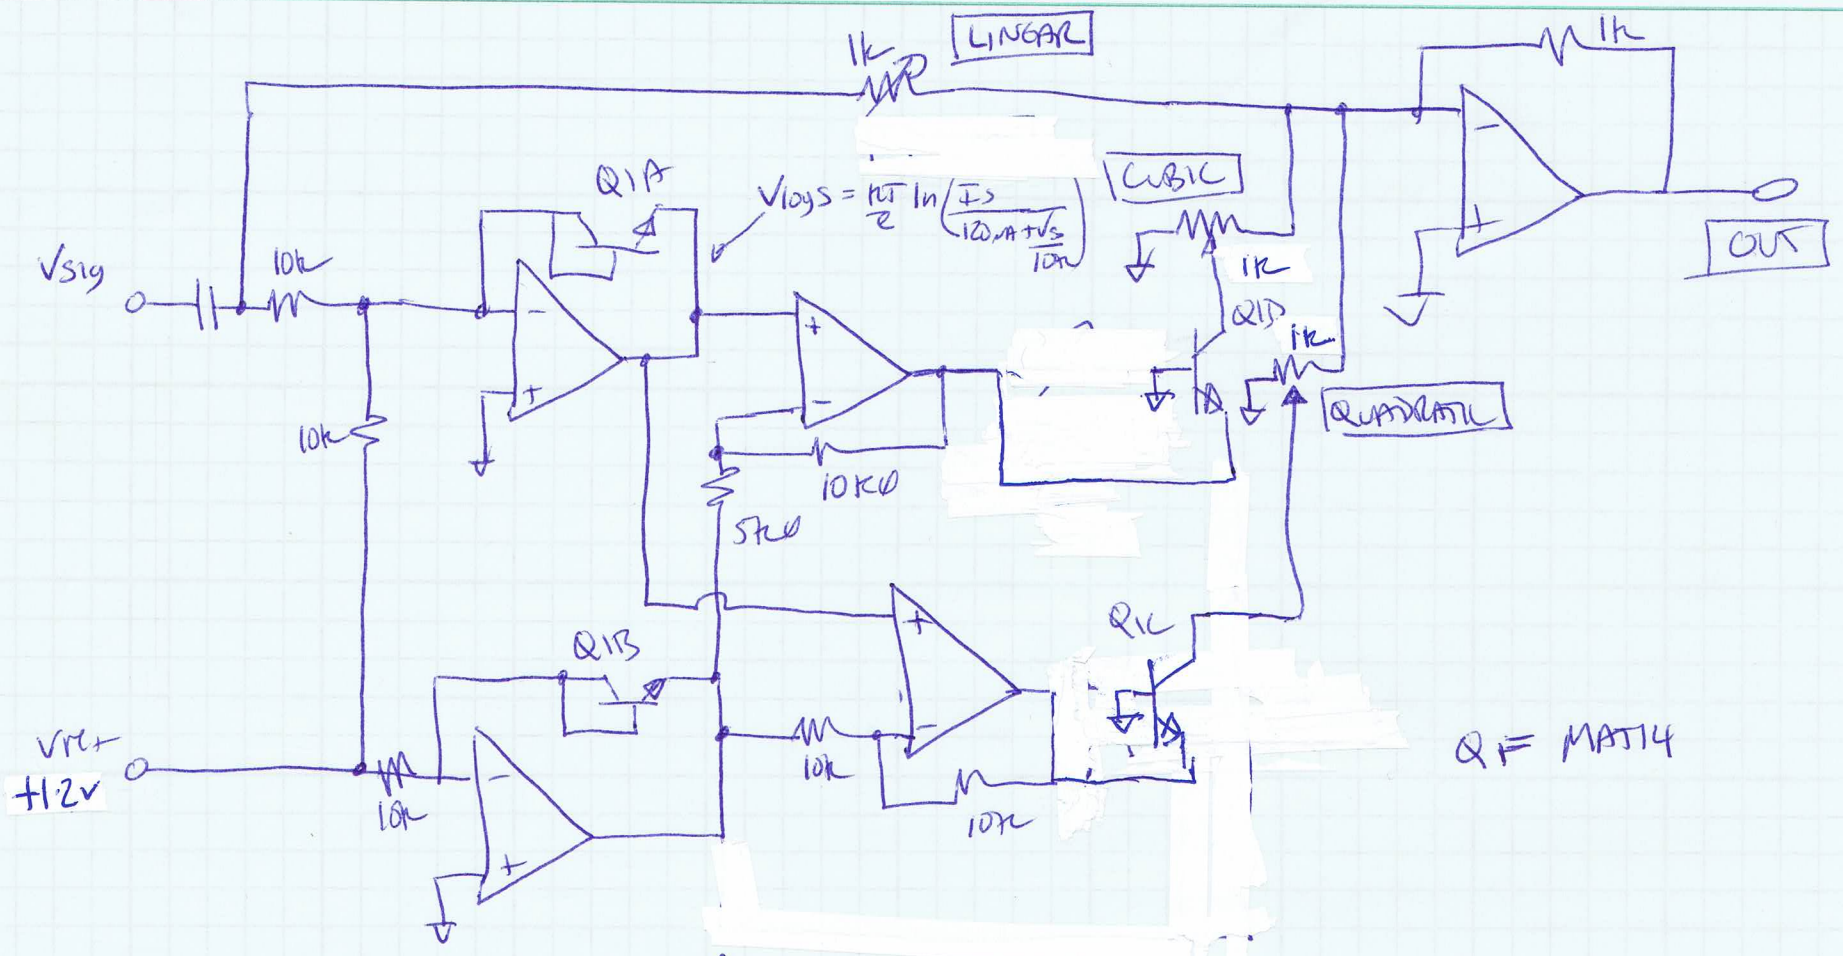 1k
LINEAR
1k
Q1A
Vlogs = kT/e ln(Is/120μA + Vs/10k)
CUBIC
1k
OUT
Vsig
10k
-
+
+
-
-
+
Q1D
1k
QUADRATIC
10k
10k
5k
Q1B
+
-
Q1C
Vref
+1.2v
10k
-
+
10k
10k
Q1 = MAT14